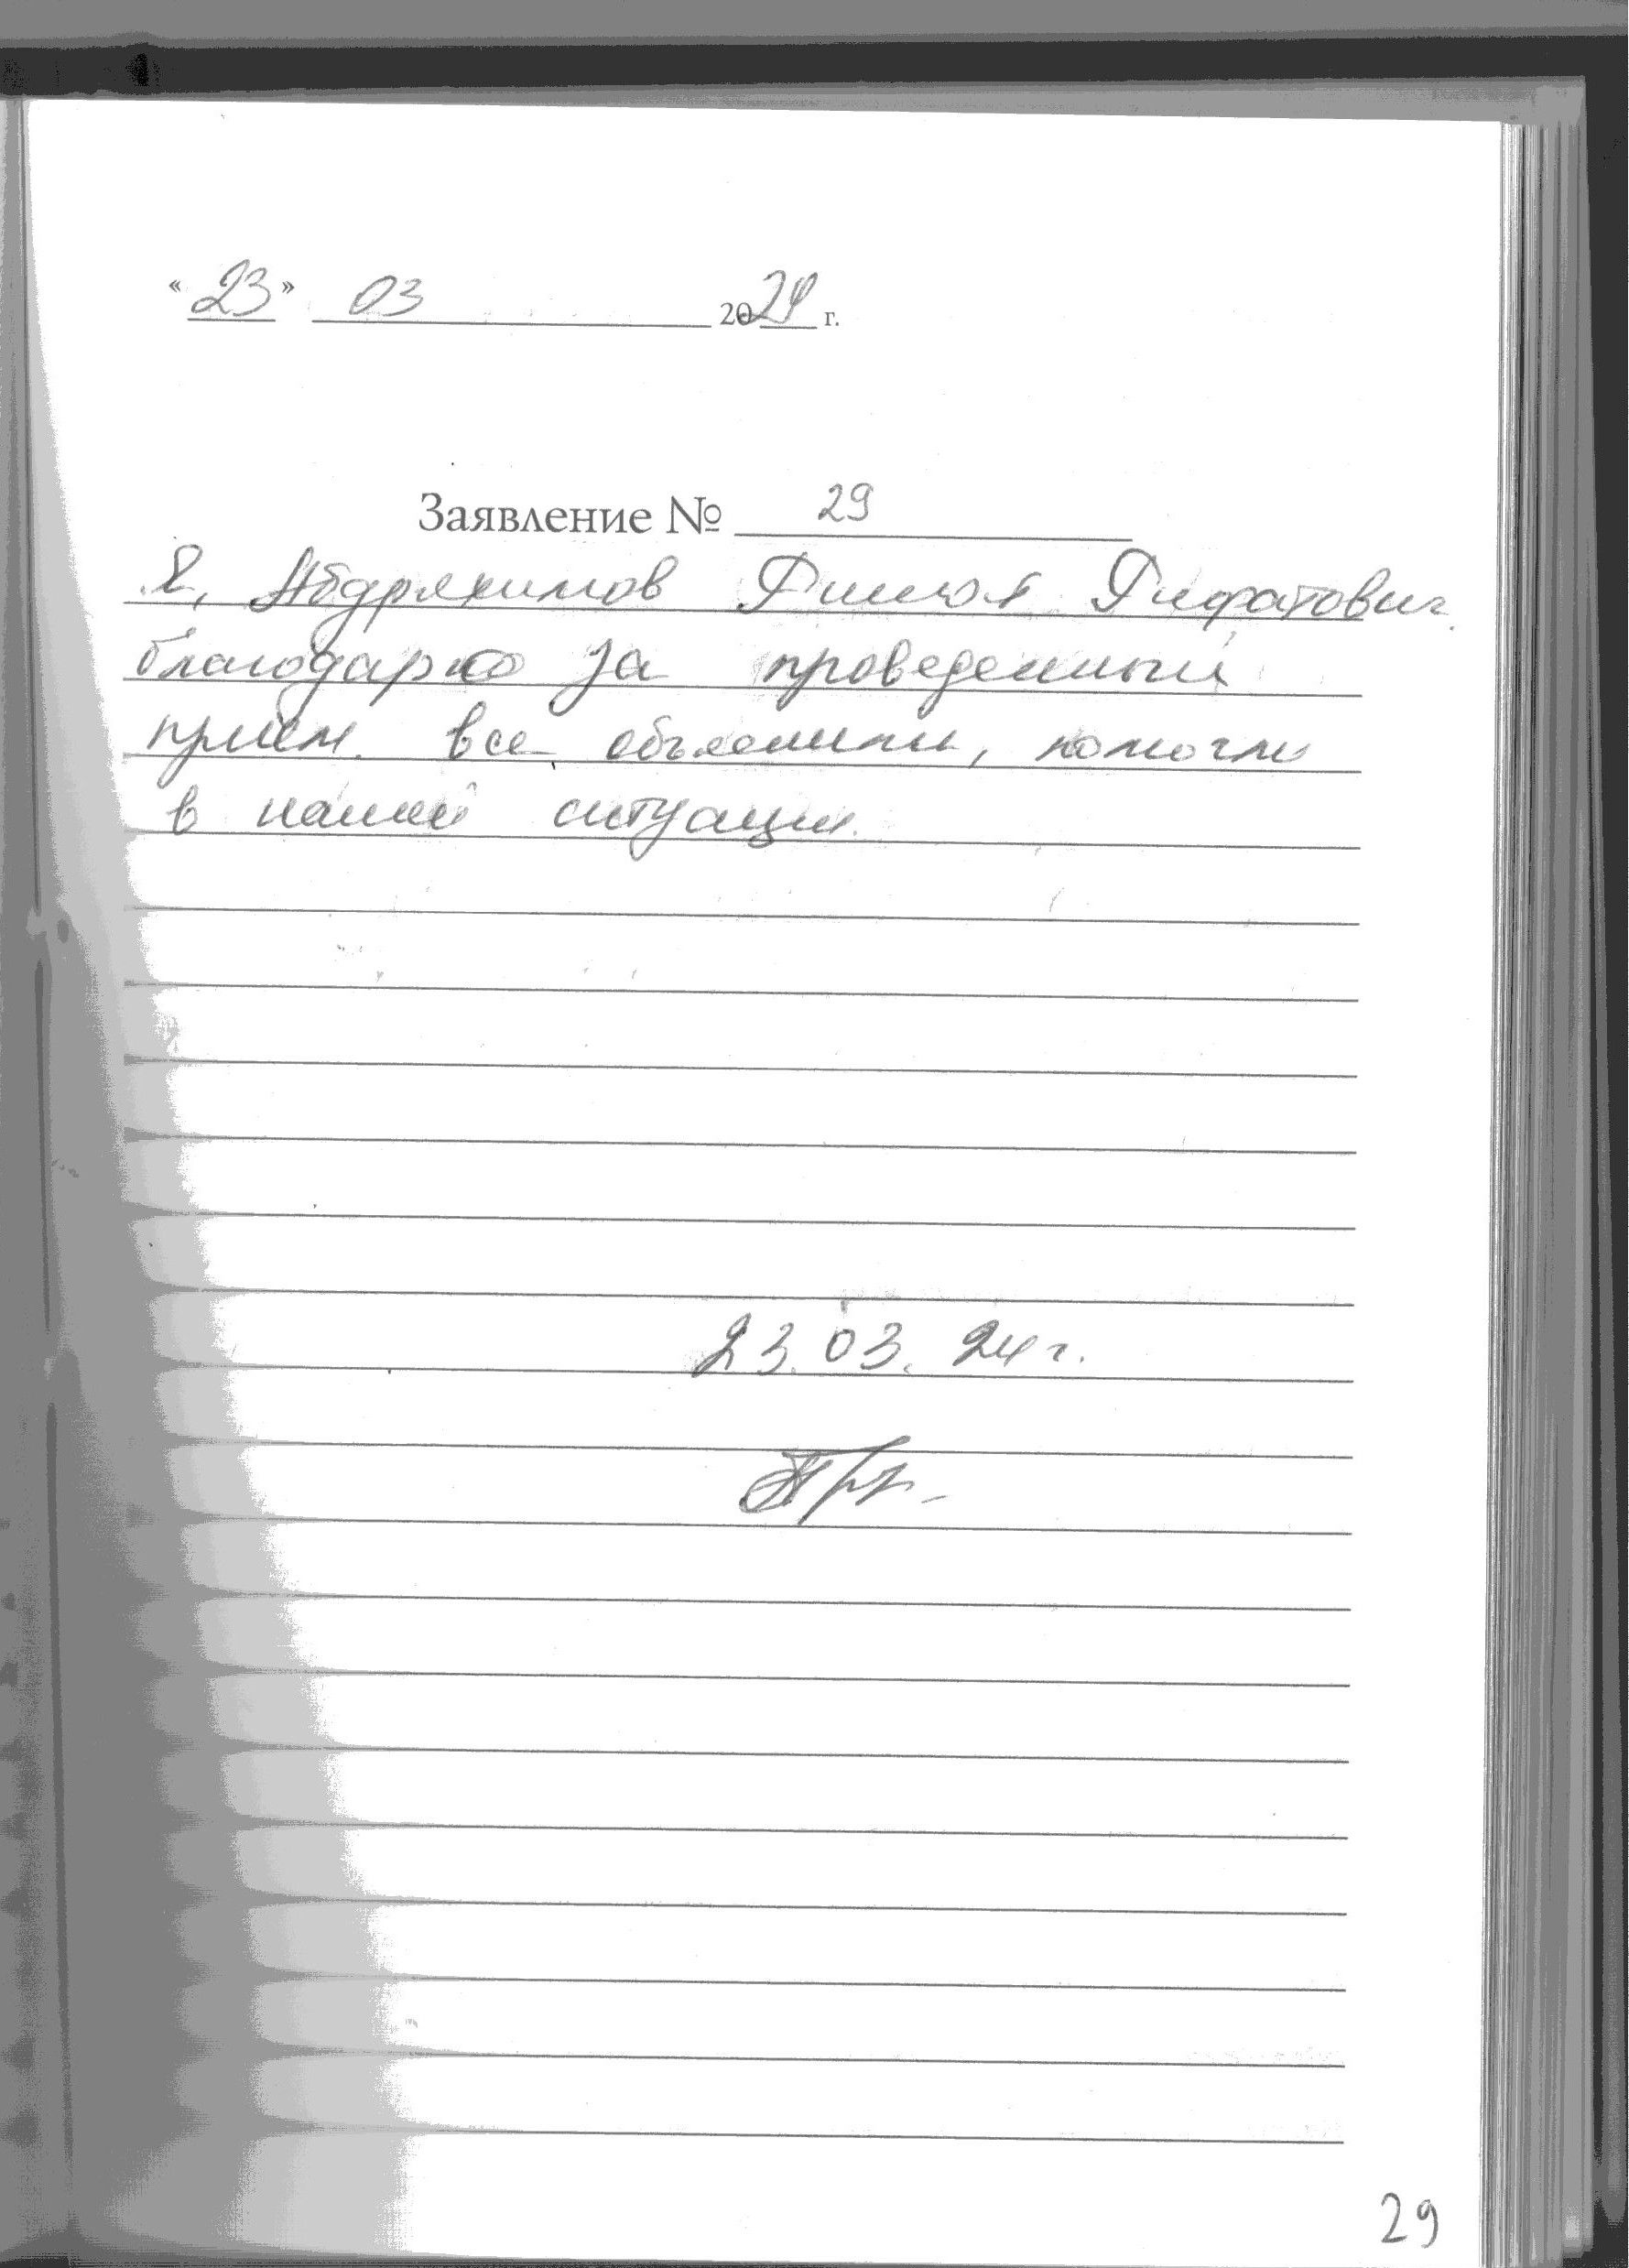 «23» 03 2024 г.
Заявление № 29
Я, Абдряхимов Рифатович
благодарю за проведенный
приём. все объяснили, помогли
в нашей ситуации.
23.03.24 г.
29